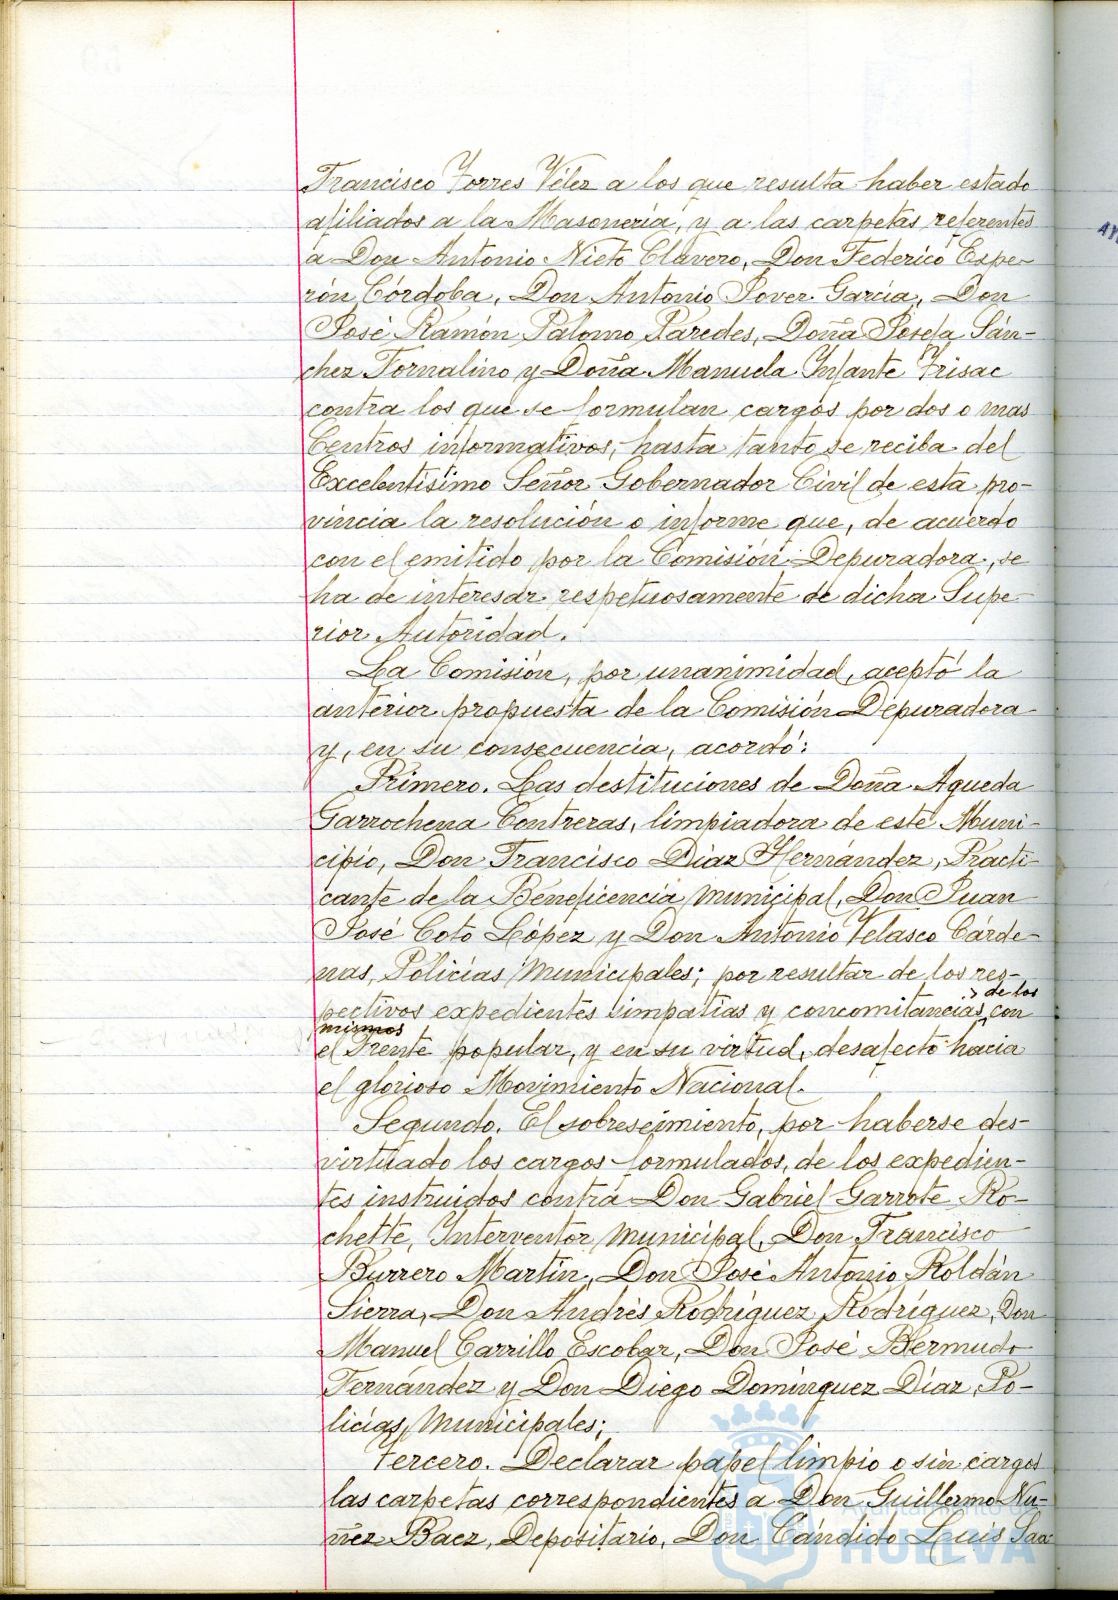 Francisco Torres Vélez a los que resulta haber estado
afiliados a la Masonería, y a las carpetas referentes
a Don Antonio Nieto Clavero, Don Federico Espe-
rón Córdoba, Don Antonio Pover García, Don
José Ramón Palomo Paredes, Doña Josefa Sán-
chez Tornalino y Doña Manuela Infante Frisac
contra los que se formulan cargos por dos o mas
Centros informativos, hasta tanto se reciba del
Excelentísimo Señor Gobernador Civil de esta pro-
vincia la resolución o informe que, de acuerdo
con el emitido por la Comisión Depuradora, se
ha de interesar respetuosamente de dicha Supe-
rior Autoridad.
La Comisión, por unanimidad, aceptó la
anterior propuesta de la Comisión Depuradora
y, en su consecuencia, acordó:
Primero. Las destituciones de Doña Agueda
Garrochena Contreras, limpiadora de este Muni-
cipio, Don Francisco Díaz Hernández, Practi-
cante de la Beneficencia municipal, Don Juan
José Coto López y Don Antonio Velasco Cárde-
nas, Policías Municipales; por resultar de los res-
> de los
pectivos expedientes simpatías y concomitancias con
mismos
el Frente popular, y en su virtud, desafecto hacia
el glorioso Movimiento Nacional.
Segundo. El sobreseimiento, por haberse des-
virtuado los cargos formulados, de los expedien-
tes instruidos contra Don Gabriel Garrote Ro-
chette, Interventor municipal, Don Francisco
Burrero Martín, Don José Antonio Roldán
Sierra, Don Andrés Rodríguez Rodríguez, Don
Manuel Carrillo Escobar, Don José Bermudo
Fernández y Don Diego Domínguez Díaz, Po-
licías Municipales;
Tercero. Declarar papel limpio o sin cargos
las carpetas correspondientes a Don Guillermo Nu-
ñez Baez, Depositario, Don Cándido Luis Saa
Ayuntamiento de
HUELVA